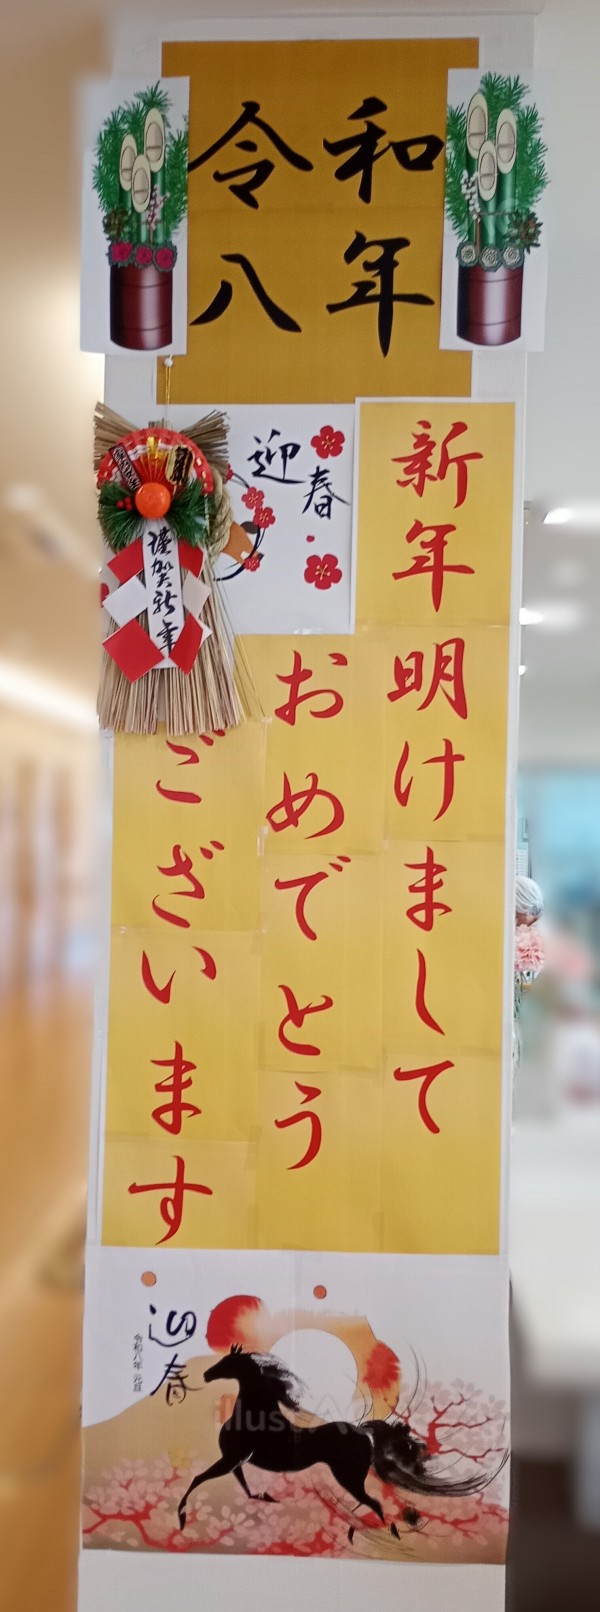 令和
八年
迎春
謹賀新年
新年明けまして
おめでとう
ございます
迎春
令和八年 元旦
illustAC